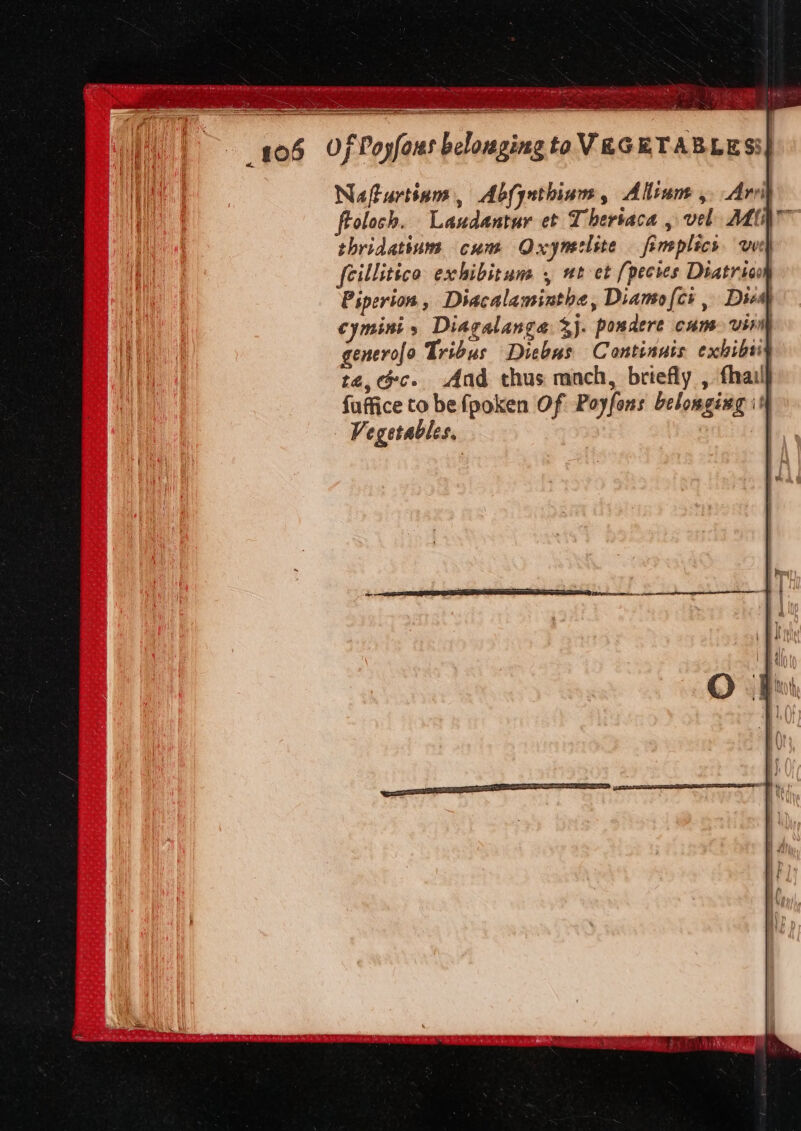 106 Of Poyſons belonging to VEGETABLES
Naſturtium, Abſynthium, Allium,
ſtoloch. Laudantur et Theriaca, vel
thridatium cum Oxymelite ſimplici
ſcillitico exhibitum; ut et ſpecies Diatrion
Piperion, Diacalaminthe, Diamoſci,
cymini, Diagalanga ʒj. pondere cum
generoſo Tribus Diebus Continuis exhibi
ta, &c. And thus much, briefly, ſhall
ſuffice to be ſpoken Of Poyſons belonging
Vegetables.
O